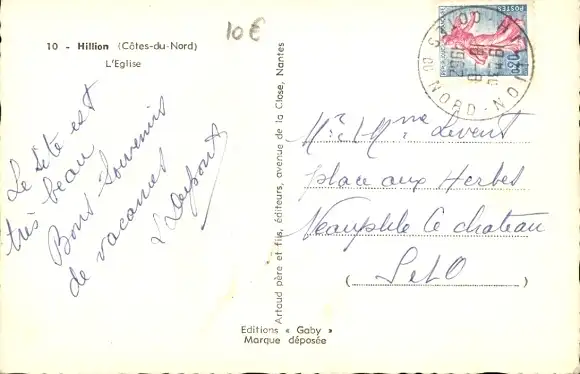 10€
10 - Hillion (Côtes-du-Nord)
L'Eglise
Le site est
très beau
Bons Souvenirs
de vacances
Artaud père et fils, éditeurs, avenue de la Close, Nantes
Editions « Gaby »
Marque déposée
POSTES
0,20
NORD
Mr et Mme Levent
place aux Herbes
Neauphle Le chateau
S et O